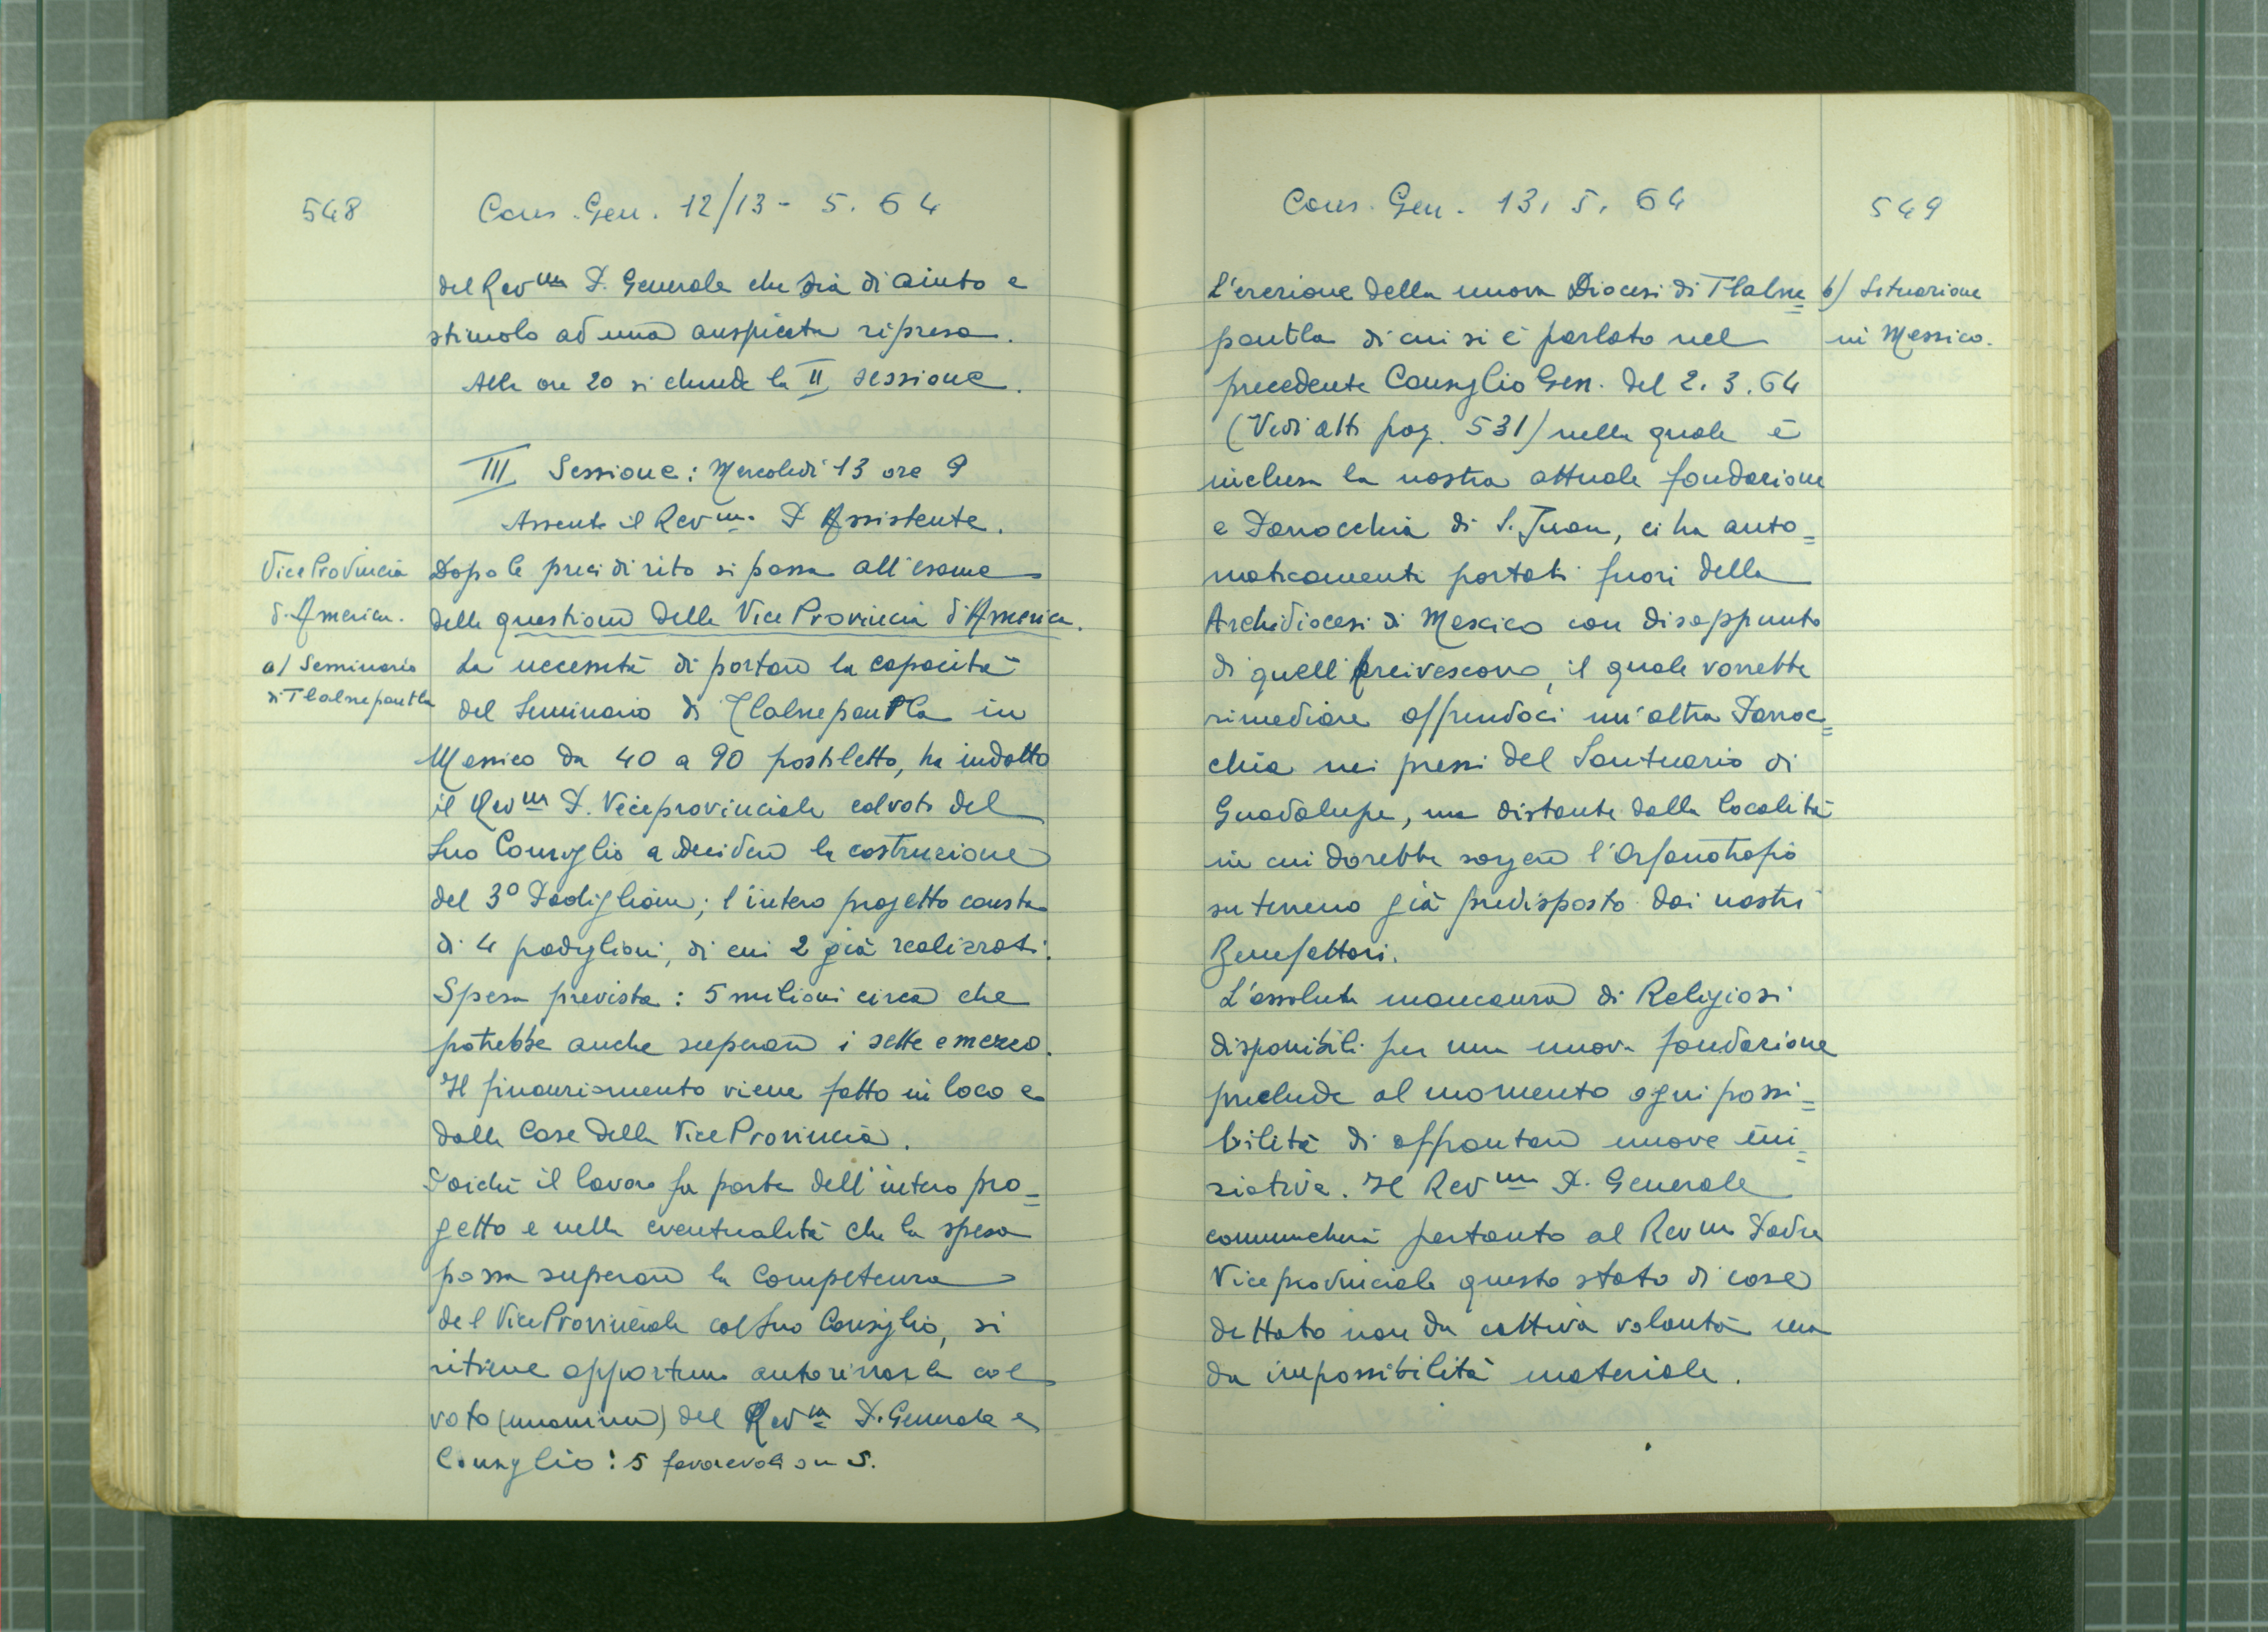 548
Cons. Gen. 12/13 - 5. 64
del Rev.mo P. Generale che sia di aiuto e
stimolo ad una auspicata ripresa.
Alle ore 20 si chiude la II sessione.
III Sessione: Mercoledì 13 ore 9
Assente il Rev.mo P. Assistente.
Vice Provincia
d'America.
a) Seminario
di Tlalnepantla
Dopo le preci di rito si passa all'esame
delle questioni della Vice Provincia d'America.
La necessità di portare la capacità
del Seminario di Tlalnepantla in
Messico da 40 a 90 postiletto, ha indotto
il Rev.mo P. Viceprovinciale col voto del
suo Consiglio a decidere la costruzione
del 3° Padiglione; l'intero progetto consta
di 4 padiglioni, di cui 2 già realizzati.
Spesa prevista: 5 milioni circa che
potrebbe anche superare i sette e mezzo.
Il finanziamento viene fatto in loco e
dalle Case della Vice Provincia.
Poiché il lavoro fa parte dell'intero pro=
getto e nella eventualità che la spesa
possa superare la competenza
del Vice Provinciale col suo Consiglio, si
ritiene opportuno autorizzarla col
voto (unanime) del Rev.mo P. Generale e
Consiglio: 5 favorevoli su 5.
Cons. Gen. 13. 5. 64
549
b) Situazione
in Messico.
L'erezione della nuova Diocesi di Tlalne=
pantla di cui si è parlato nel
precedente Consiglio Gen. del 2. 3. 64
(Vedi atti pag. 531) nella quale è
inclusa la nostra attuale fondazione
e Parrocchia di S. Juan, ci ha auto=
maticamente portati fuori della
Archidiocesi di Mexico con disappunto
di quell'Arcivescovo, il quale vorrebbe
rimediare offrendoci un'altra Parroc=
chia nei pressi del Santuario di
Guadalupe, ma distante dalla località
in cui dovrebbe sorgere l'Orfanotrofio
su terreno già predisposto dai nostri
Benefattori.
L'assoluta mancanza di Religiosi
disponibili per una nuova fondazione
preclude al momento ogni possi=
bilità di affrontare nuove ini=
ziative. Il Rev.mo P. Generale
comunicherà pertanto al Rev.mo Padre
Viceprovinciale questo stato di cose
dettato non da cattiva volontà ma
da impossibilità materiale.